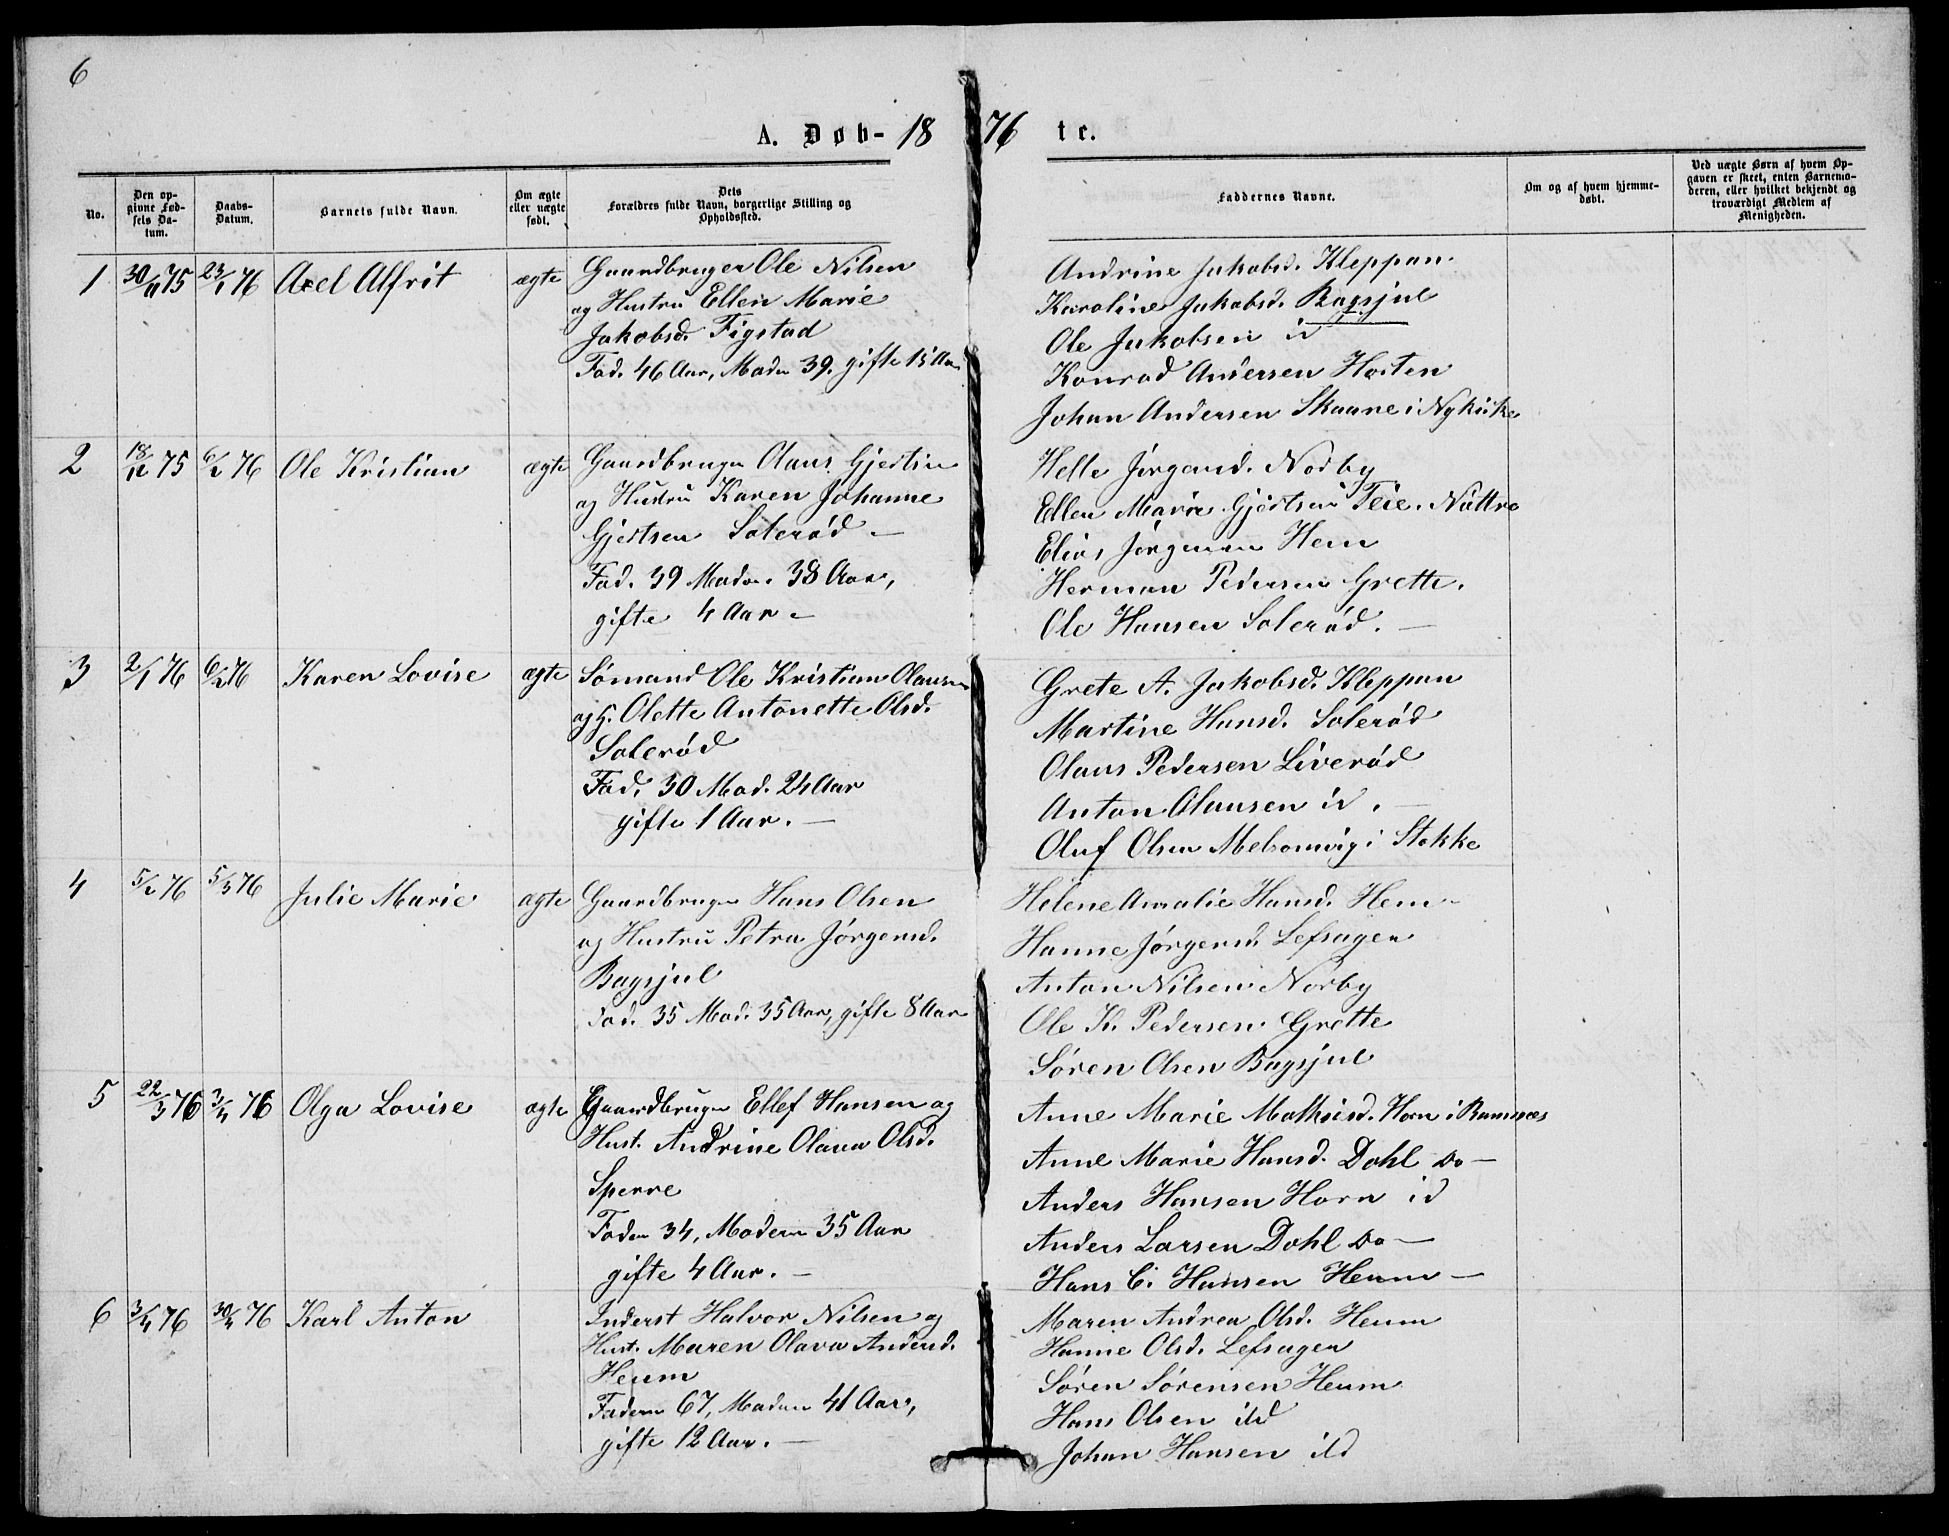 6
A. Døb- 18 76 te.
No.
Den opgivne Fødsels Datum.
Daabs-Datum.
Barnets fulde Navn.
Om ægte eller uægte født.
Dets Forældres fulde Navn, borgerlige Stilling og Opholdssted.
Faddernes Navne.
Om og af hvem hjemmedøbt.
Ved uægte Børn af hvem Opgaven er skeet, enten Barnemoderen, eller hvilket bekjendt og troværdigt Medlem af Menigheden.
1 30/11 75 23/1 76 Axel Alfrit ægte Gaardbruger Ole Nilsen
og Hustru Ellen Marie
Jakobsd. Figstad
Fad. 46 Aar, Moder 39. gifte 15 Aar
Andrine Jakobsd. Kleppan.
Karoline Jakobsd. Bagsjul
Ole Jakobsen id
Konrad Andersen Hosten
Johan Andersen Skaane i Nykirke
2 18/12 75 6/2 76 Ole Kristian ægte Gaardbruger Olaus Gjertsen
og Hustru Karen Johanne
Gjertsen Solerød –
Fad. 39 Moder. 38 Aar,
gifte 4 Aar –
Helle Jørgensd. Nodby
Ellen Marie Gjertsen Teie. Nøttrø
Elias Jørgensen Hem
Herman Pedersen Grette.
Ole Hansen Solerød. –
3 2/1 76 6/2 76 Karen Lovise ægte Sømand Ole Kristian Olausen
og H. Olette Antonette Olsd.
Solerød
Fad. 30 Mod. 24 Aar
gifte 1 Aar. –
Grete A. Jakobsd. Kleppan
Martine Hansd. Solerød
Olaus Pedersen Liverød
Anton Olausen id. –
Oluf Olsen Melsomvig i Stokke
4 5/2 76 5/3 76 Julie Marie ægte Gaardbruger Hans Olsen
og Hustru Petra Jørgensd.
Bagsjul
Fad. 35 Mod. 35 Aar, gifte 8 Aar
Helene Amalie Hansd. Hem –
Hanne Jørgensd. Lefsager
Anton Nilsen Norby
Ole K. Pedersen Grette
Søren Olsen Bagsjul
5 22/3 76 3/4 76 Olga Lovise ægte Gaardbruger Ellef Hansen og
Hust. Andrine Olava Olsd.
Sperre
Fader 34, Moderen 35 Aar
gifte 4 Aar. –
Anne Marie Mathisd. Horn i Ramnæs
Anne Marie Hansd. Dohl do –
Anders Hansen Horn id
Anders Larsen Dohl do –
Hans C. Hansen Heum –
6 3/4 76 30/4 76 Karl Anton
Inderst Halvor Nilsen og
Hust. Maren Olava Andersd.
Heum
Faderen 67, Moderen 41 Aar,
gifte 12 Aar. –
Maren Andrea Olsd. Heum
Hanne Olsd. Lefsagen
Søren Sørensen Heum
Hans Olsen ibd
Johan Hansen ibd